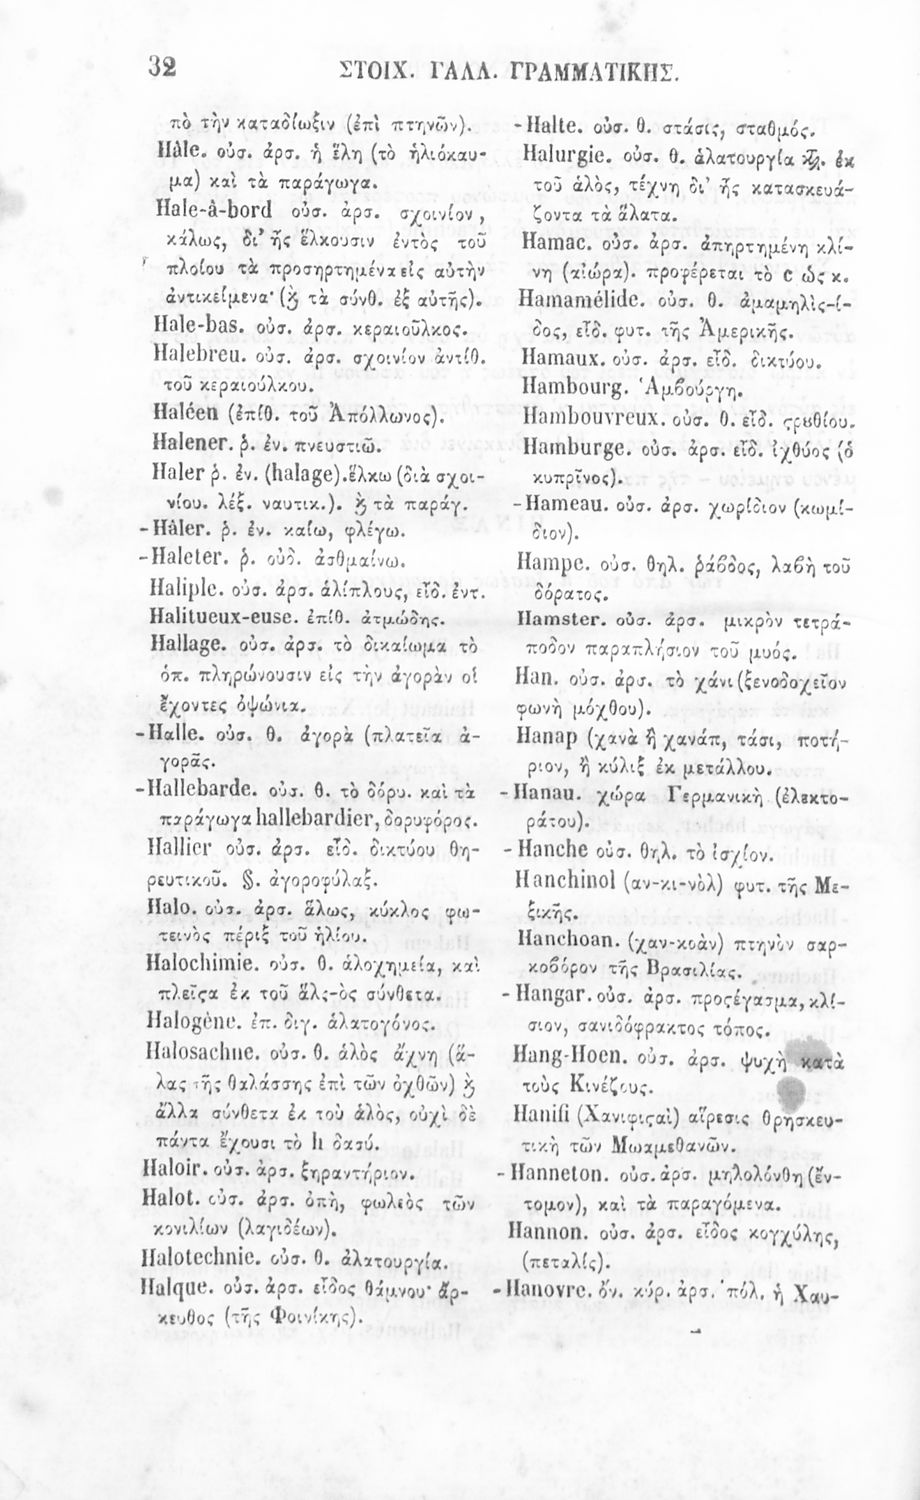 32
ΣΤΟΙΧ. ΓΑΛΛ. ΓΡΑΜΜΑΤΙΚΗΣ.
πὸ τὴν καταδίωξιν (ἐπὶ πτηνῶν).
Hâle. οὐσ. ἀρσ. ἡ ἕλη (τὸ ἡλιόκαυ-
μα) καὶ τὰ παράγωγα.
Hale-à-bord οὐσ. ἀρσ. σχοινίον,
κάλως, δι' ἧς ἕλκουσιν ἐντὸς τοῦ
πλοίου τὰ προσηρτημένα εἰς αὐτὴν
ἀντικείμενα· (ϗ τὰ σύνθ. ἐξ αὐτῆς).
Hale-bas. οὐσ. ἀρσ. κεραιοῦλκος.
Halebreu. οὐσ. ἀρσ. σχοινίον ἀντίθ.
τοῦ κεραιούλκου.
Haléen (ἐπίθ. τοῦ Ἀπόλλωνος).
Halener. ῥ. ἐν. πνευστιῶ.
Haler ῥ. ἐν. (halage). ἕλκω (διὰ σχοι-
νίου. λέξ. ναυτικ.). ϗ τὰ παράγ.
-Hâler. ῥ. ἐν. καίω, φλέγω.
-Haleter. ῥ. οὐδ. ἀσθμαίνω.
Haliple. οὐσ. ἀρσ. ἁλίπλους, εἶδ. ἐντ.
Halitueux-euse. ἐπίθ. ἀτμώδης.
Hallage. οὐσ. ἀρσ. τὸ δικαίωμα τὸ
ὁπ. πληρώνουσιν εἰς τὴν ἀγορὰν οἱ
ἔχοντες ὀψώνια.
-Halle. οὐσ. θ. ἀγορὰ (πλατεῖα ἀ-
γορᾶς.
-Hallebarde. οὐσ. θ. τὸ δόρυ. καὶ τὰ
παράγωγα hallebardier, δορυφόρος.
Hallier οὐσ. ἀρσ. εἶδ. δικτύου θη-
ρευτικοῦ. §. ἀγοροφύλαξ.
Halo. οὐσ. ἀρσ. ἅλως, κύκλος φω-
τεινὸς πέριξ τοῦ ἡλίου.
Halochimie. οὐσ. θ. ἁλοχημεία, καὶ
πλεῖϛα ἐκ τοῦ ἅλς-ὸς σύνθετα.
Halogène. ἐπ. διγ. ἁλατογόνος.
Halosachne. οὐσ. θ. ἁλὸς ἄχνη (ἅ-
λας τῆς θαλάσσης ἐπὶ τῶν ὀχθῶν) ϗ
ἄλλα σύνθετα ἐκ τοῦ ἁλὸς, οὐχὶ δὲ
πάντα ἔχουσι τὸ h δασύ.
Haloir. οὐσ. ἀρσ. ξηραντήριον.
Halot. οὐσ. ἀρσ. ὀπὴ, φωλεὸς τῶν
κονιλίων (λαγιδέων).
Halotechnie. οὐσ. θ. ἁλατουργία.
Halque. οὐσ. ἀρσ. εἶδος θάμνου· ἄρ-
κευθος (τῆς Φοινίκης).
-Halte. οὐσ. θ. στάσις, σταθμός.
Halurgie. οὐσ. θ. ἁλατουργία ἐκ
τοῦ ἁλὸς, τέχνη δι' ἧς κατασκευά-
ζοντα τὰ ἅλατα.
Hamac. οὐσ. ἀρσ. ἀπηρτημένη κλί-
νη (αἰώρα). προφέρεται τὸ c ὡς κ.
Hamamélide. οὐσ. θ. ἁμαμηλὶς-ί-
δος, εἶδ. φυτ. τῆς Ἀμερικῆς.
Hamaux. οὐσ. ἀρσ. εἶδ. δικτύου.
Hambourg. Ἁμβούργη.
Hambouvreux. οὐσ. θ. εἶδ. ϛρȣθίου.
Hamburge. οὐσ. ἀρσ. εἶδ. ἰχθύος (ὁ
κυπρῖνος).
-Hameau. οὐσ. ἀρσ. χωρίδιον (κωμί-
διον).
Hampe. οὐσ. θηλ. ῥάβδος, λαβὴ τοῦ
δόρατος.
Hamster. οὐσ. ἀρσ. μικρὸν τετρά-
ποδον παραπλήσιον τοῦ μυός.
Han. οὐσ. ἀρσ. τὸ χάνι (ξενοδοχεῖον
φωνὴ μόχθου).
Hanap (χανὰ ἢ χανάπ, τάσι, ποτή-
ριον, ἢ κύλιξ ἐκ μετάλλου.
-Hanau. χώρα Γερμανικὴ (ἐλεκτο-
ράτου).
-Hanche οὐσ. θηλ. τὸ ἰσχίον.
Hanchinol (αν-κι-νὸλ) φυτ. τῆς Με-
ξικῆς.
Hanchoan. (χαν-κοὰν) πτηνὸν σαρ-
κοβόρον τῆς Βρασιλίας.
-Hangar. οὐσ. ἀρσ. προςέγασμα, κλί-
σιον, σανιδόφρακτος τόπος.
Hang-Hoen. οὐσ. ἀρσ. ψυχὴ κατὰ
τοὺς Κινέζους.
Hanifi (Χανιφιϛαὶ) αἵρεσις θρησκευ-
τικὴ τῶν Μωαμεθανῶν.
-Hanneton. οὐσ. ἀρσ. μηλολόνθη (ἔν-
τομον), καὶ τὰ παραγόμενα.
Hannon. οὐσ. ἀρσ. εἶδος κογχύλης,
(πεταλίς).
-Hanovre. ὄν. κύρ. ἀρσ. πόλ. ἡ Χαν-